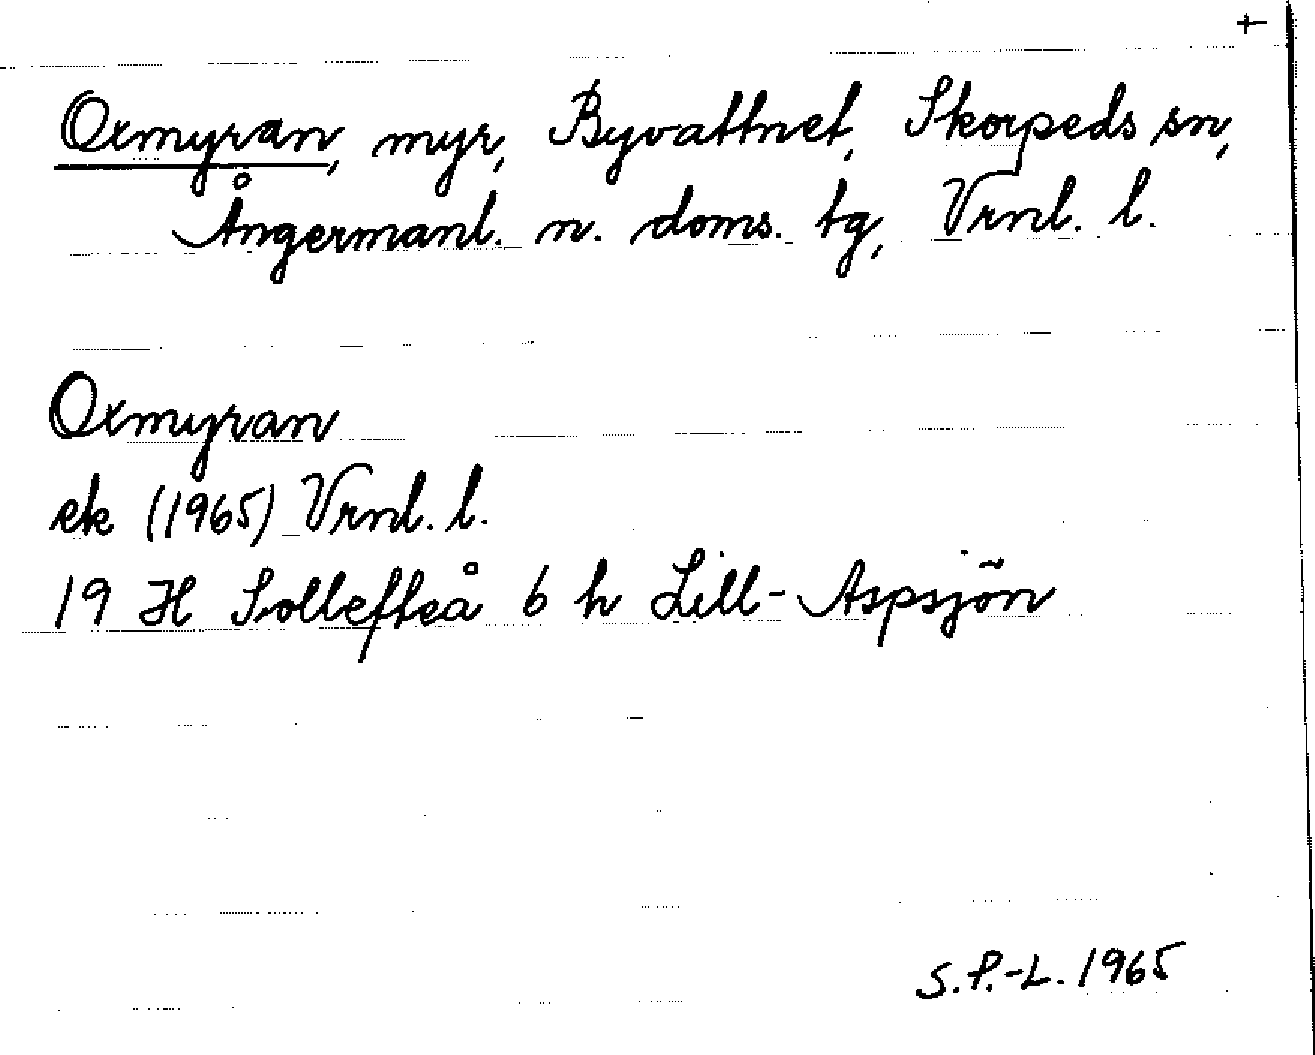 +
Oxmyran, myr, Byvattnet, Skorpeds sn,
Ångermanl. n. doms. tg, Vrnl. l.
Oxmyran
ek (1965) Vrnl. l.
19 H Sollefteå 6 h Lill-Aspsjön
S.P.-L. 1965